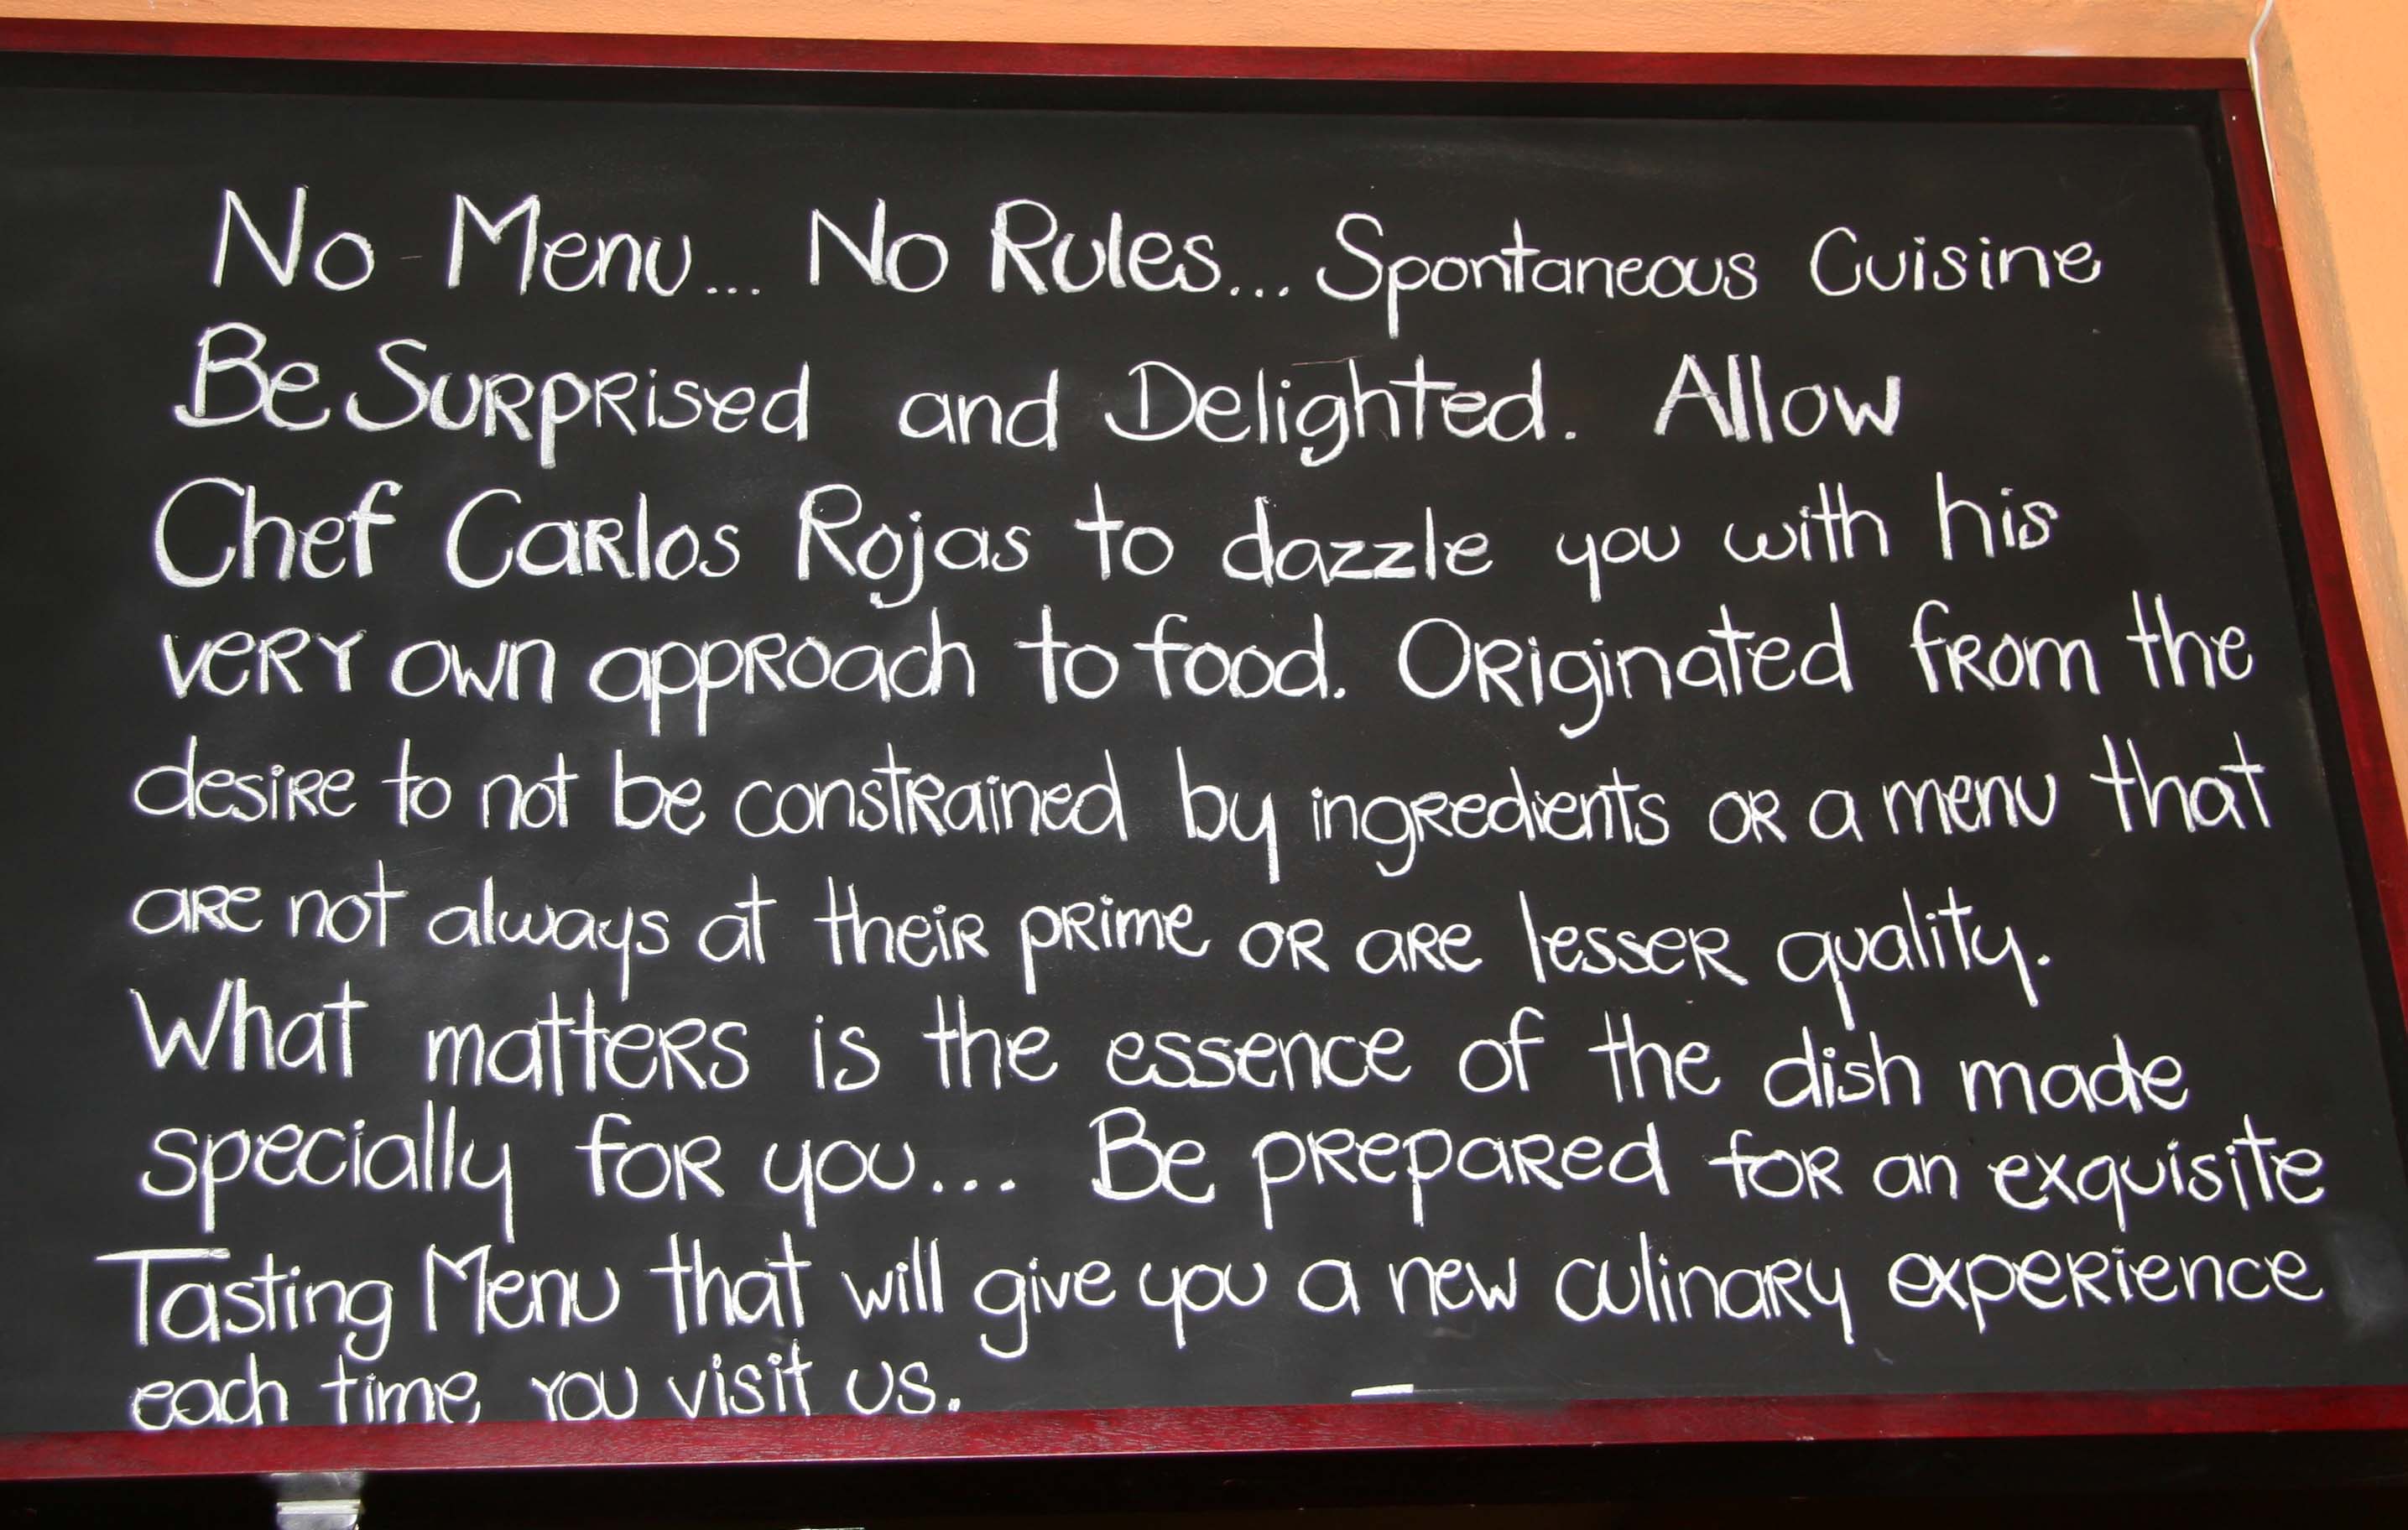 No Menu... No Rules... Spontaneous Cuisine
Be Surprised and Delighted. Allow
Chef Carlos Rojas to dazzle you with his
very own approach to food. Originated from the
desire to not be constrained by ingredients or a menu that
are not always at their prime or are lesser quality.
What matters is the essence of the dish made
specially for you... Be prepared for an exquisite
Tasting Menu that will give you a new culinary experience
each time you visit us.